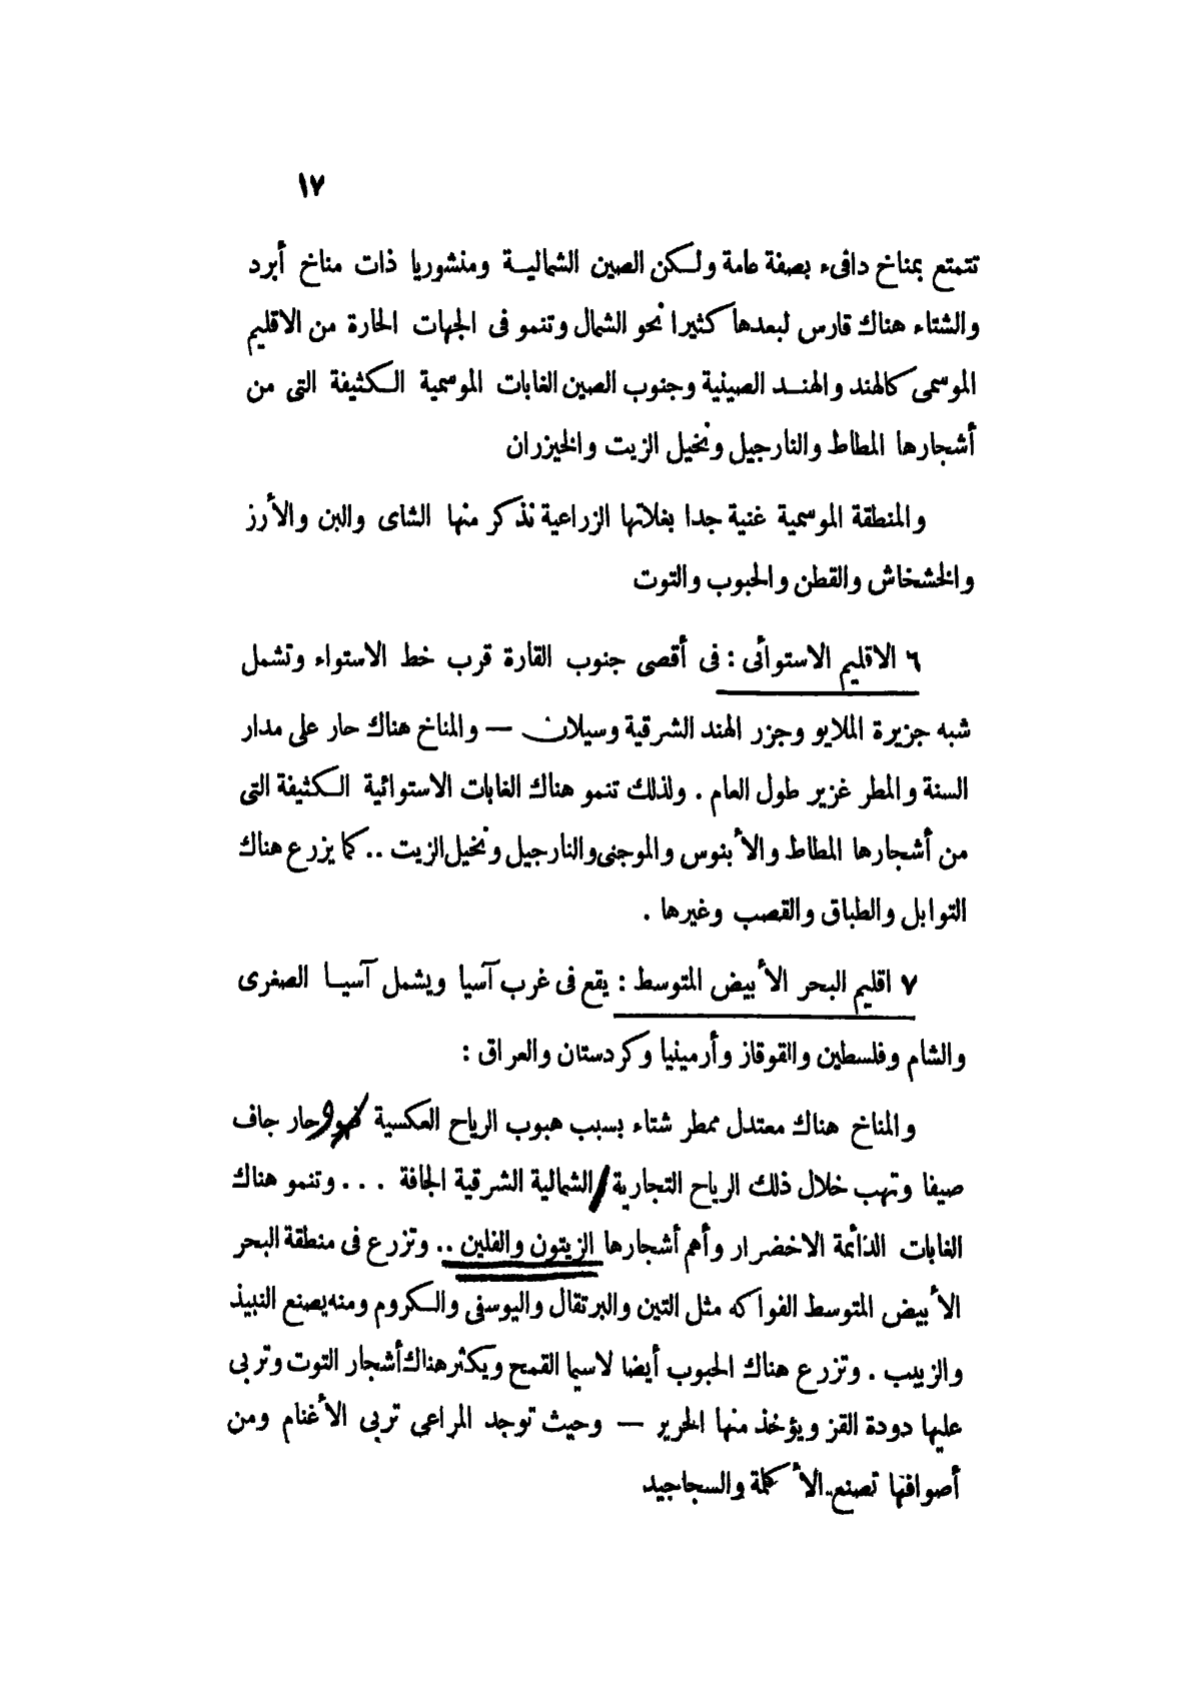 ١٧
تتمتع بمناخ دافىء بصفة عامة ولكن الصين الشمالية ومنشوريا ذات مناخ أبرد
والشتاء هناك قارس لبعدها كثيرا نحو الشمال وتنمو فى الجهات الحارة من الاقليم
الموسمى كالهند والهند الصينية وجنوب الصين الغابات الموسمية الكثيفة التى من
أشجارها المطاط والنارجيل ونخيل الزيت والخيزران
والمنطقة الموسمية غنية جدا بغلاتها الزراعية نذكر منها الشاى والبن والأرز
والخشخاش والقطن والحبوب والتوت
٦ الاقليم الاستوائى : فى أقصى جنوب القارة قرب خط الاستواء وتشمل
شبه جزيرة الملايو وجزر الهند الشرقية وسيلان — والمناخ هناك حار على مدار
السنة والمطر غزير طول العام . ولذلك تنمو هناك الغابات الاستوائية الكثيفة التى
من أشجارها المطاط والأبنوس والموجنى والنارجيل ونخيل الزيت .. كما يزرع هناك
التوابل والطباق والقصب وغيرها .
٧ اقليم البحر الأبيض المتوسط : يقع فى غرب آسيا ويشمل آسيا الصغرى
والشام وفلسطين والقوقاز وأرمينيا وكردستان والعراق :
والمناخ هناك معتدل ممطر شتاء بسبب هبوب الرياح العكسية حار جاف
صيفا وتهب خلال ذلك الرياح التجارية الشمالية الشرقية الجافة . . . وتنمو هناك
الغابات الدائمة الاخضرار وأهم أشجارها الزيتون والفلين .. وتزرع فى منطقة البحر
الأبيض المتوسط الفواكه مثل التين والبرتقال واليوسفى والكروم ومنه يصنع النبيذ
والزبيب . وتزرع هناك الحبوب أيضا لاسيما القمح ويكثر هناك أشجار التوت وتربى
عليها دودة القز ويؤخذ منها الحرير — وحيث توجد المراعى تربى الأغنام ومن
أصوافها تصنع الأكلمة والسجاجيد